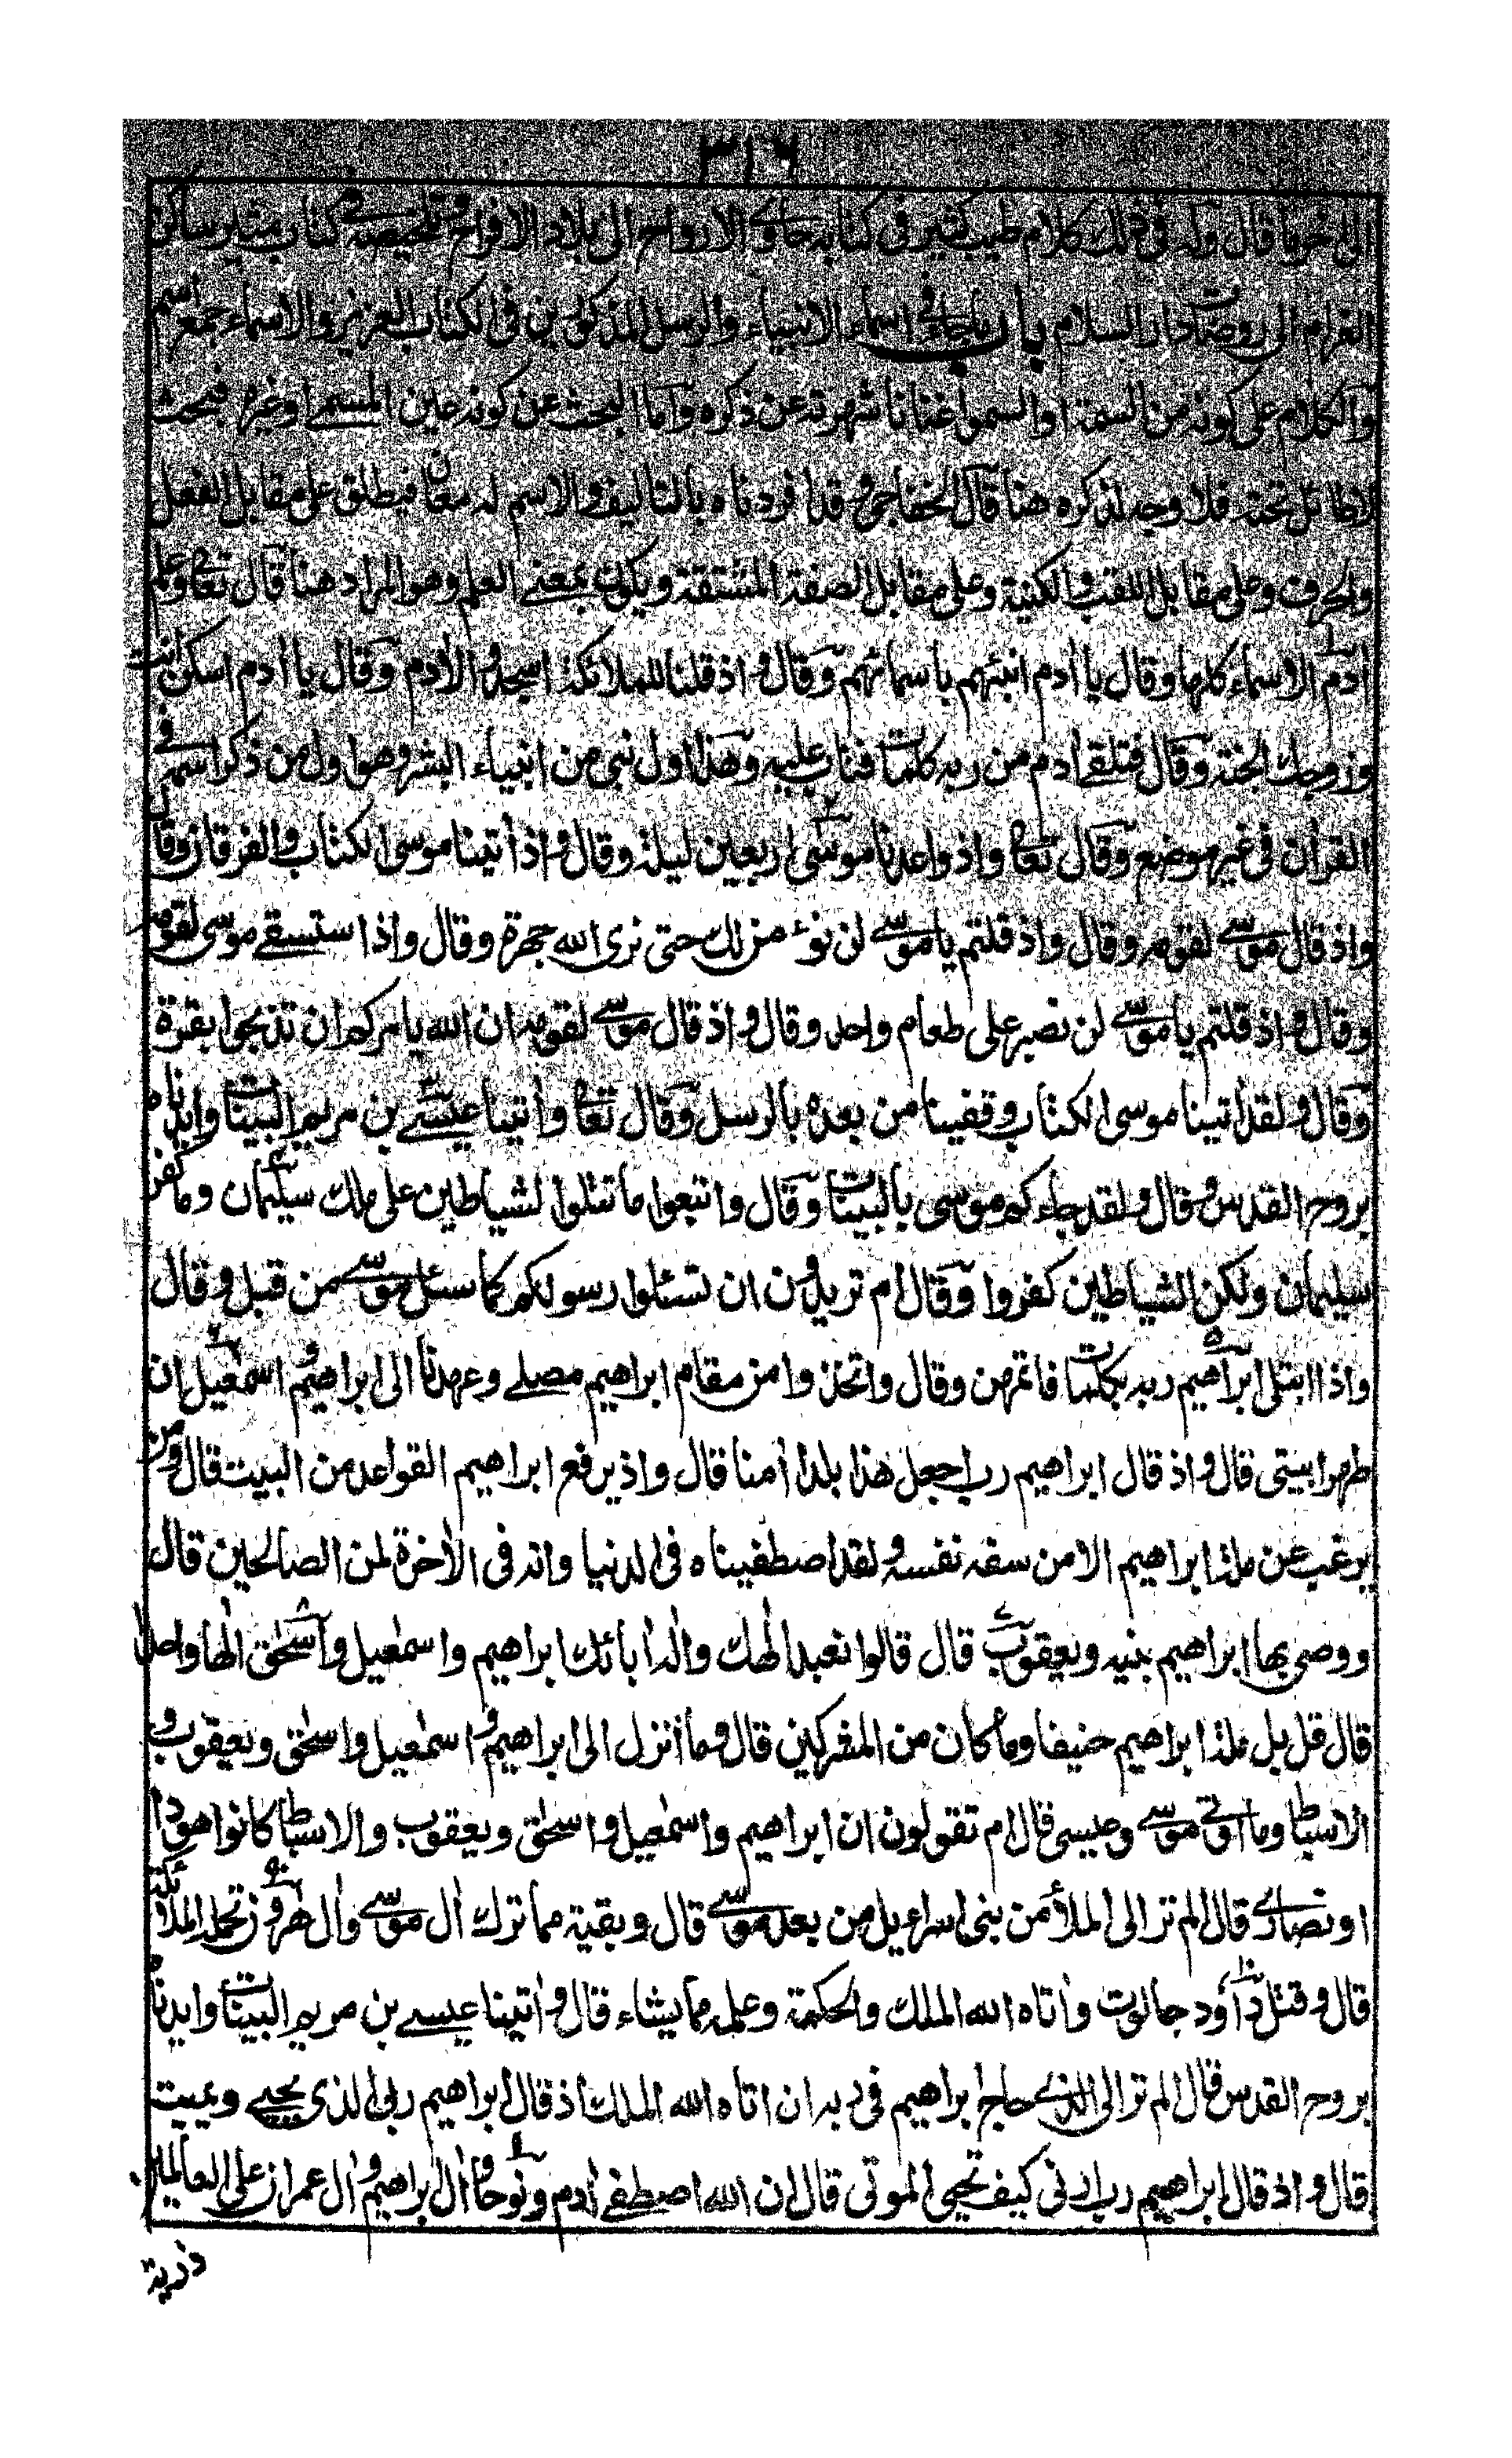 ٣١٦
الى اخر ما قال وله فى ذلك كلام طيب كثير فى كتابه حادى الارواح الى بلاد الافراح وتلخيصه فى كتاب مثير ساكن
الغرام الى روضات دار السلام باب ما جاء فى اسماء الانبياء والرسل المذكورين فى الكتاب العزيز والاسماء جمع اسم
والكلام على كونه من السمة او السمو اغنانا شهرته عن ذكره واما البحث عن كونه عين المسمى او غيره فبحث
لا طائل تحته فلا وجه لذكره هنا قال الخفاجى وقد افردناه بالتاليف والاسم له معان فيطلق على مقابل الفعل
والحرف وعلى مقابل اللقب والكنية وعلى مقابل الصفة المشتقة ويكون بمعنى العلم وهو المراد هنا قال تعالى وعلم
اٰدم الاسماء كلها وقال يا اٰدم انبئهم باسمائهم وقال واذ قلنا للملائكة اسجدوا لاٰدم وقال يا اٰدم اسكن انت
وزوجك الجنة وقال فتلقى اٰدم من ربه كلمات فتاب عليه وهذا اول نبى من انبياء البشر وهو اول من ذكر اسمه فى
القراٰن فى غير موضع وقال تعالى واذ واعدنا موسى اربعين ليلة وقال واذ اٰتينا موسى الكتاب والفرقان وقال
واذ قال موسى لقومه وقال واذ قلتم يا موسى لن نؤمن لك حتى نرى الله جهرة وقال واذ استسقى موسى لقومه
وقال واذ قلتم يا موسى لن نصبر على طعام واحد وقال واذ قال موسى لقومه ان الله يامركم ان تذبحوا بقرة
وقال ولقد اٰتينا موسى الكتاب وقفينا من بعده بالرسل وقال تعالى واٰتينا عيسى بن مريم البينات وايدناه
بروح القدس وقال ولقد جاءكم موسى بالبينات وقال واتبعوا ما تتلوا الشياطين على ملك سليمان وما كفر
سليمان ولكن الشياطين كفروا وقال ام تريدون ان تسئلوا رسولكم كما سئل موسى من قبل وقال
واذ ابتلى ابراهيم ربه بكلمات فاتمهن وقال واتخذوا من مقام ابراهيم مصلى وعهدنا الى ابراهيم واسمعيل ان
طهرا بيتى قال واذ قال ابراهيم رب اجعل هذا بلدا اٰمنا قال واذ يرفع ابراهيم القواعد من البيت قال ومن
يرغب عن ملة ابراهيم الا من سفه نفسه ولقد اصطفيناه فى الدنيا وانه فى الاٰخرة لمن الصالحين قال
ووصى بها ابراهيم بنيه ويعقوب قال قالوا نعبد الٰهك والٰه اٰبائك ابراهيم واسمٰعيل واسحٰق الٰها واحدا
قال قل بل ملة ابراهيم حنيفا وما كان من المشركين قال وما انزل الى ابراهيم واسمٰعيل واسحٰق ويعقوب و
الاسباط وما اوتى موسى وعيسى قال ام تقولون ان ابراهيم واسمٰعيل واسحٰق ويعقوب والاسباط كانوا هودا
او نصارى قال الم تر الى الملأ من بنى اسراءيل من بعد موسى قال وبقية مما ترك اٰل موسى واٰل هٰرون تحمله الملائكة
قال وقتل داود جالوت واٰتاه الله الملك والحكمة وعلمه مما يشاء قال واٰتينا عيسى بن مريم البينات وايدناه
بروح القدس قال الم تر الى الذى حاج ابراهيم فى ربه ان اتاه الله الملك اذ قال ابراهيم ربى الذى يحيى ويميت
قال واذ قال ابراهيم رب ارنى كيف تحيى الموتى قال ان الله اصطفى اٰدم ونوحا واٰل ابراهيم واٰل عمران على العالمين
ذرية